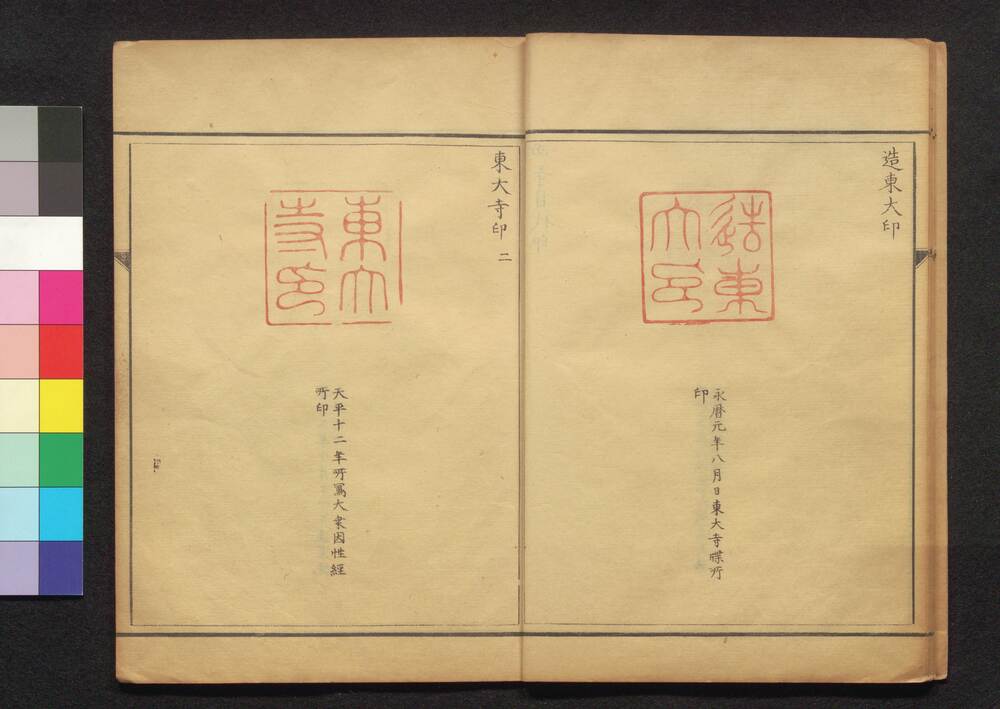 造東大印
造東
大印
永暦元年八月日東大寺牒所
印
東大寺印 二
東大
寺印
天平十二年所寫大衆因性經
所印